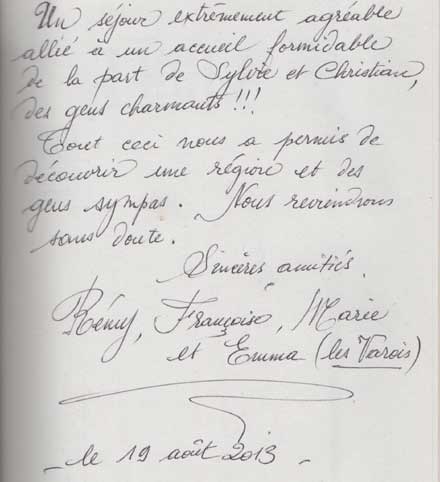 Un séjour extrêmement agréable
allié à un accueil formidable
de la part de Sylvie et Christian,
des gens charmants !!!
Tout ceci nous a permis de
découvrir une région et des
gens sympas. Nous reviendrons
sans doute.
Sincères amitiés.
Rémy, Françoise, Marie
et Emma (les Varois)
- le 19 août 2013 -